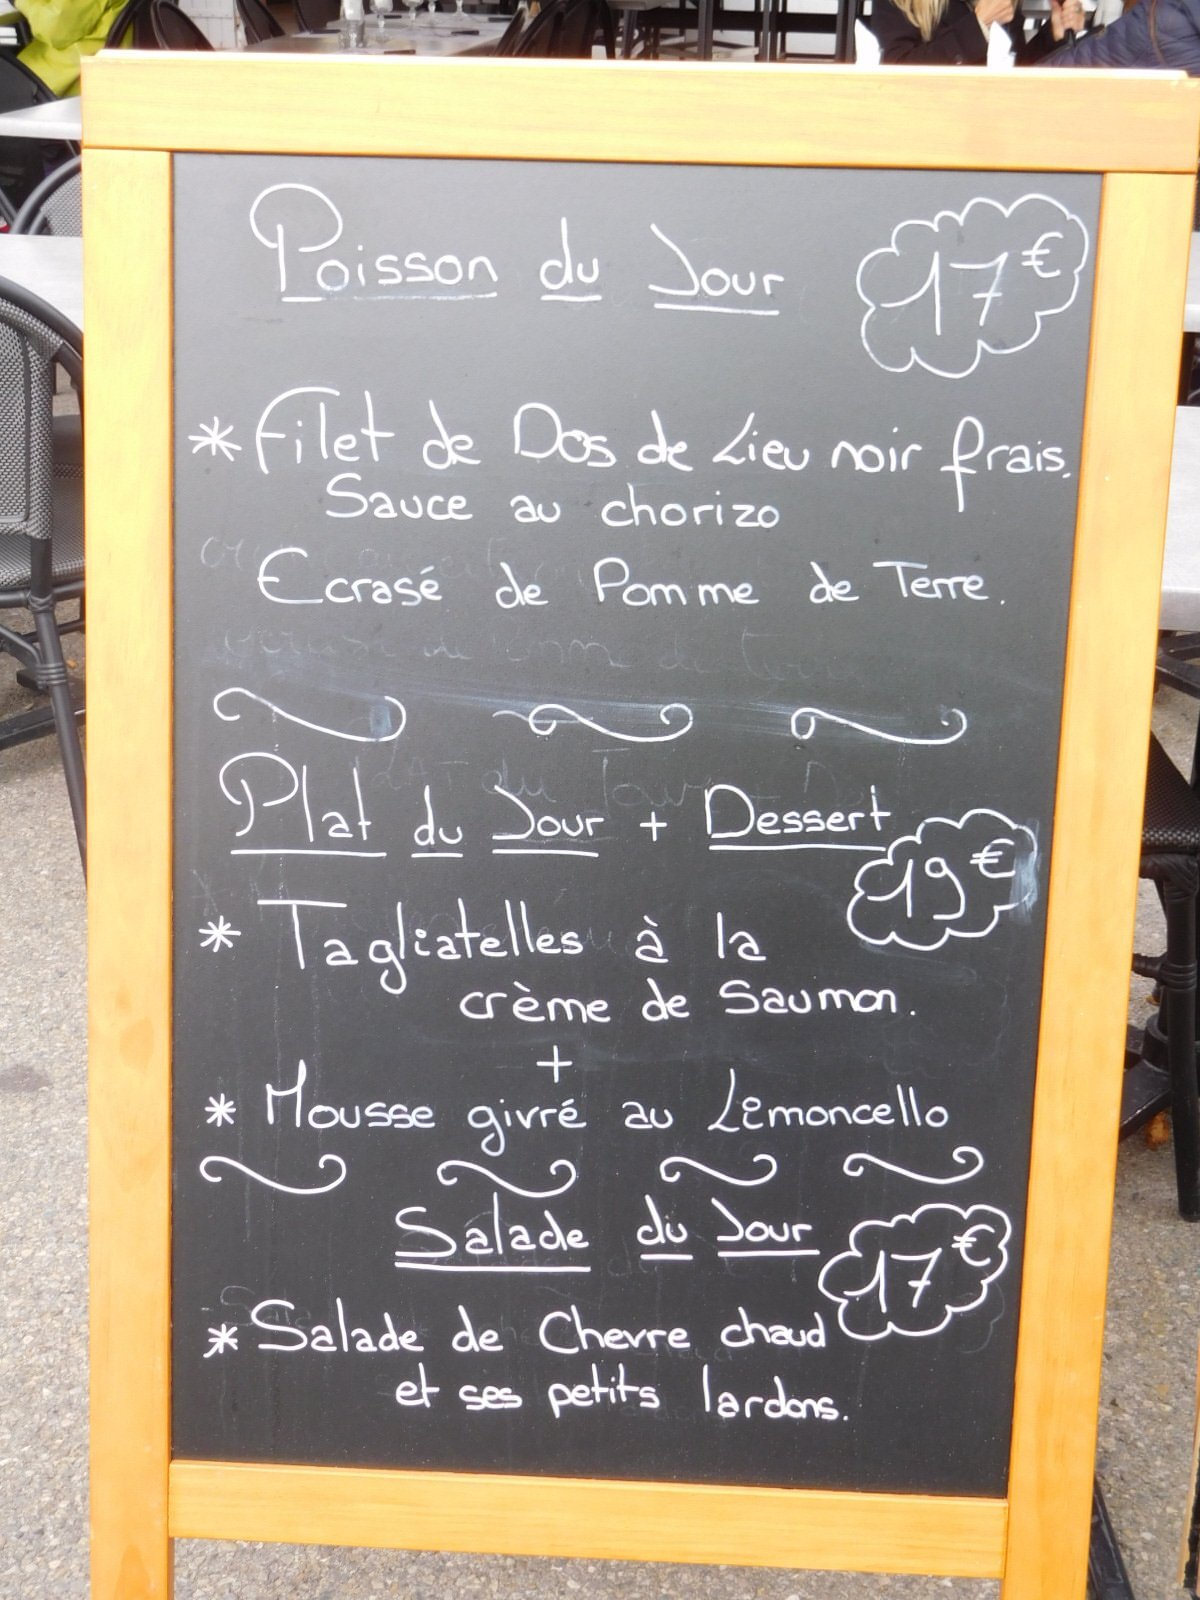 Poisson du Jour 17€
* Filet de Dos de Lieu noir frais.
Sauce au chorizo
Ecrasé de Pomme de Terre.
Plat du Jour + Dessert 19€
* Tagliatelles à la
crème de Saumon.
+
* Mousse givré au Limoncello
Salade du Jour 17€
* Salade de Chevre chaud
et ses petits lardons.